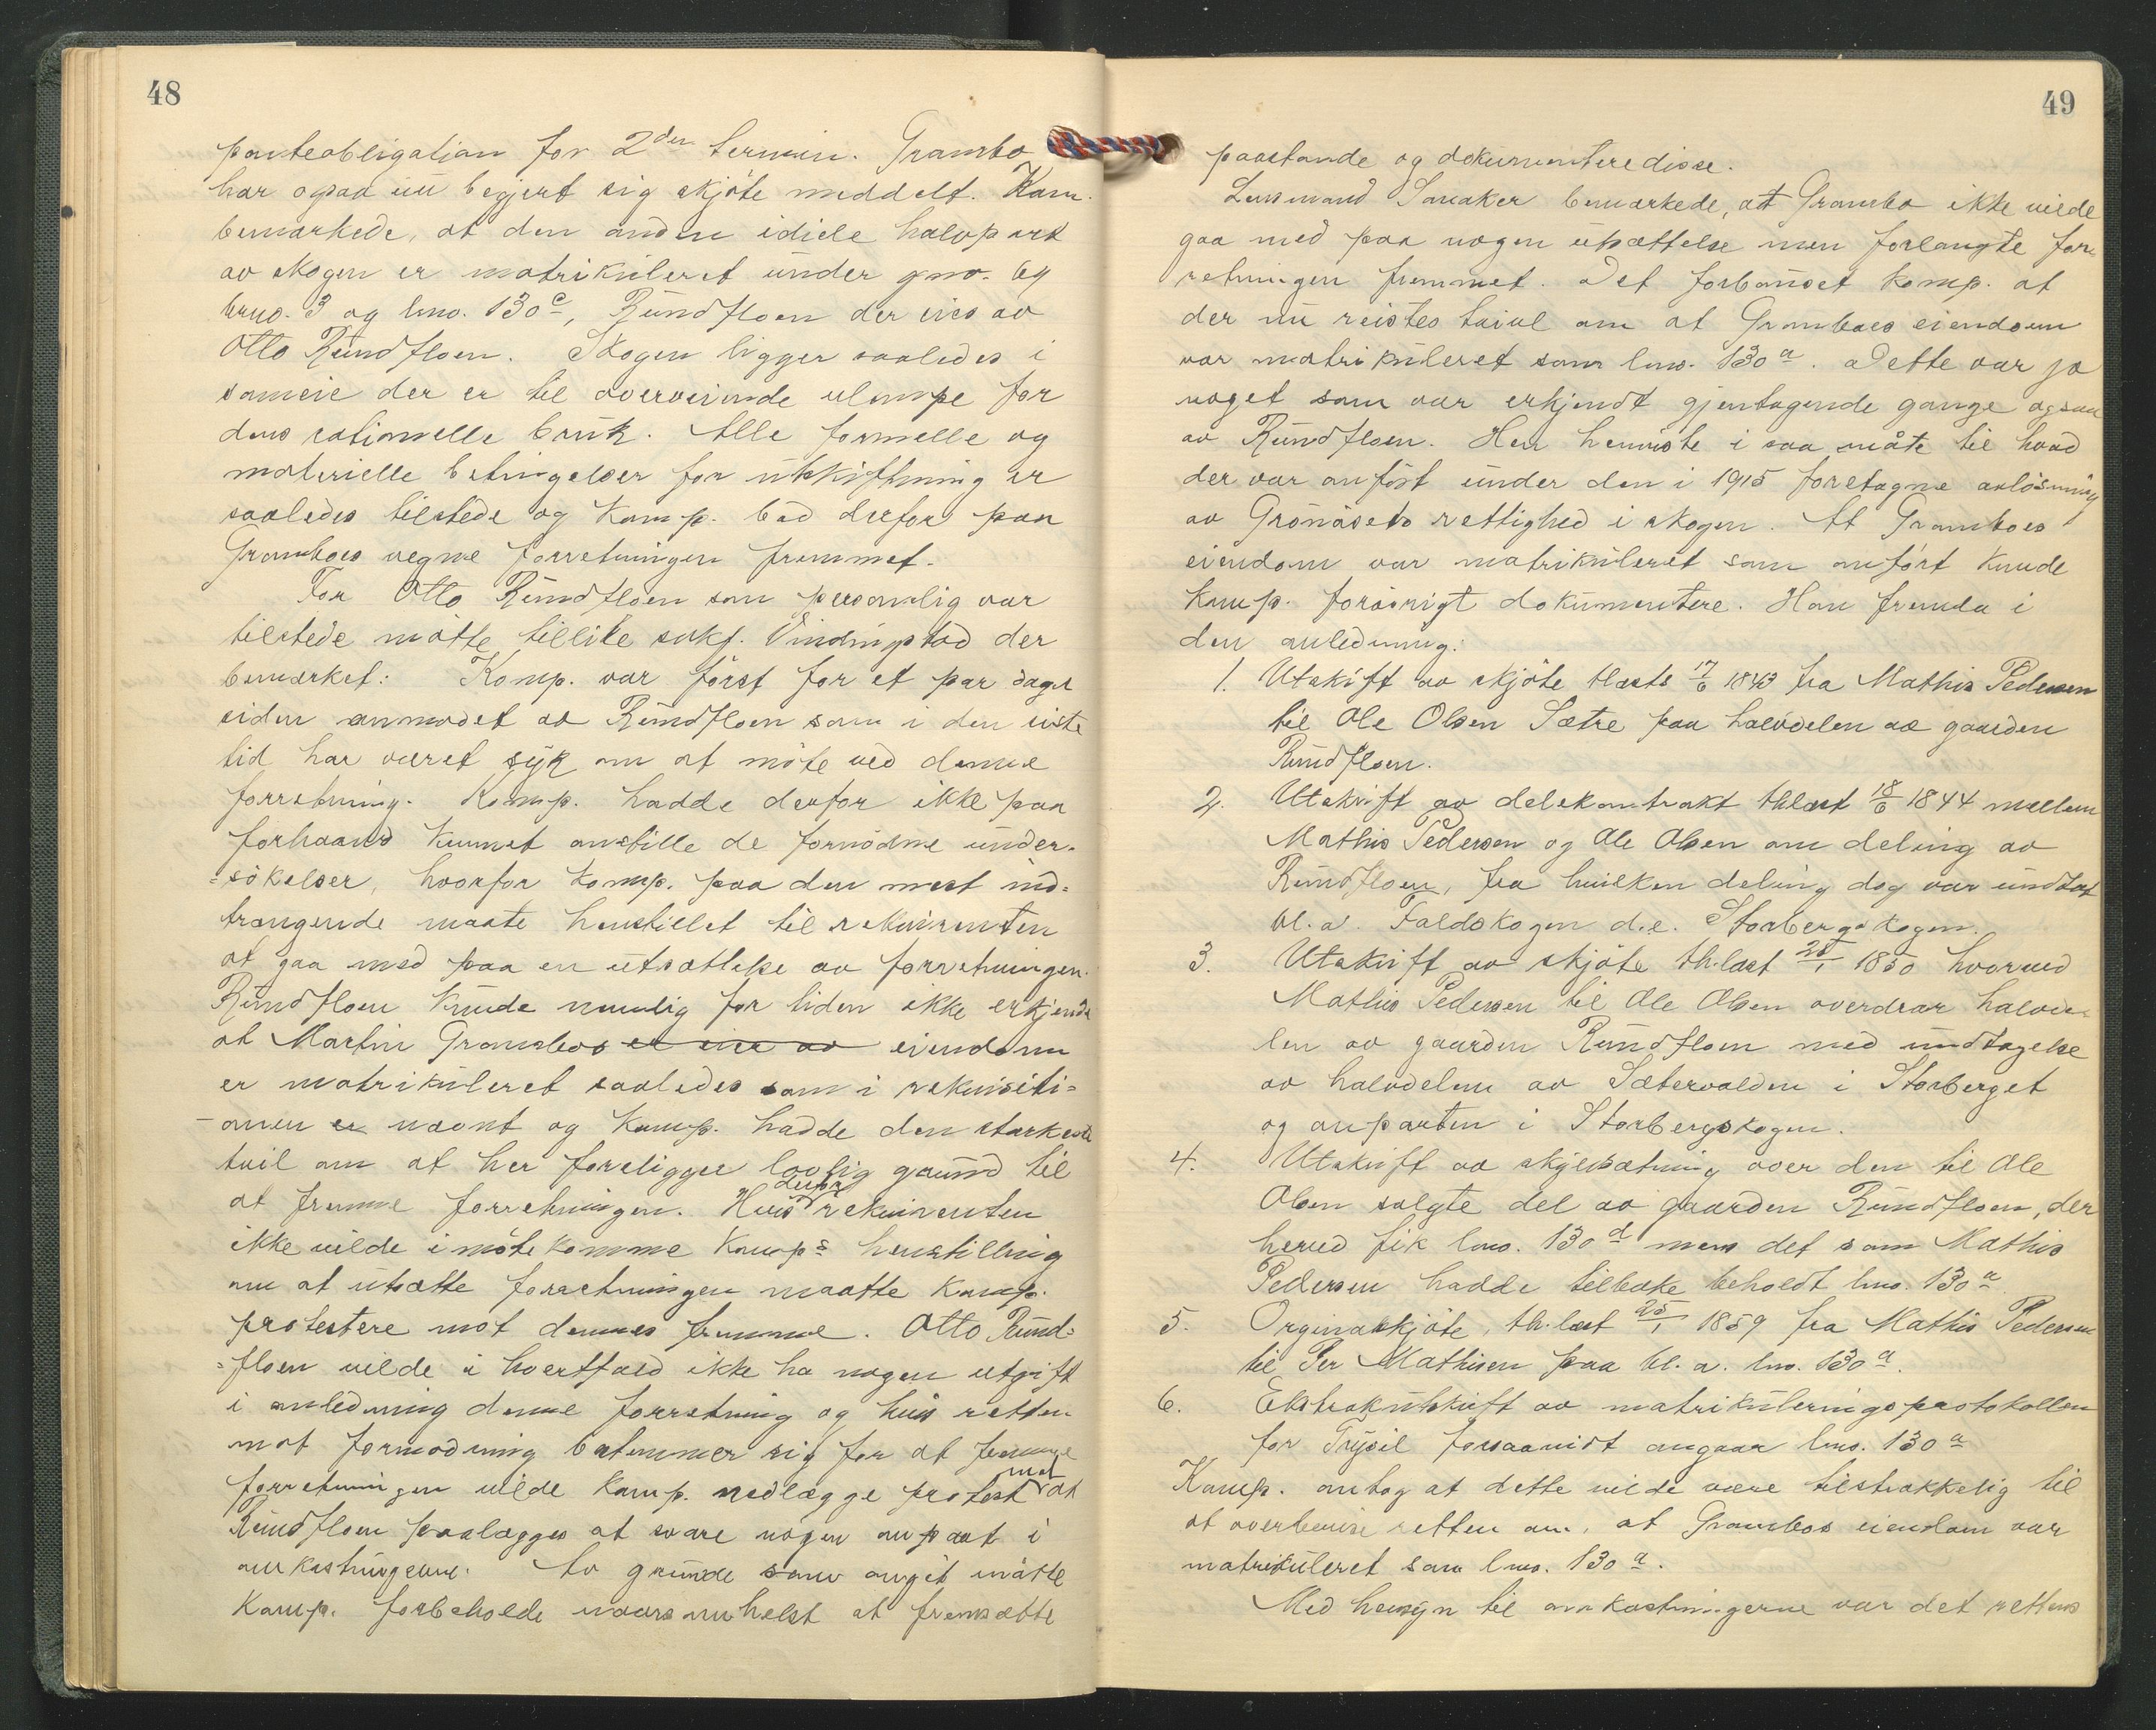 48
panteobligation for 2den termin. Grambo
har ogsaa nu begjert sig skjöte meddelt. Kom.
bemærkede, at den anden idiele halvpart
av skogen er matrikuleret under gno. og
brno. 3 og lno. 130c, Rundfloen der eies av
Otto Rundfloen. Skogen ligger saaledes i
sameie der er til overveiende ulempe for
dens rationelle bruk. Alle formelle og
materielle betingelser for utskiftning er
saaledes tilstede og Komp. bad derfor paa
Gramboes vegne forretningen fremmet.
For Otto Rundfloen som personlig var
tilstede mötte tillike sakf. Vindingstad der
bemerket: Komp. var först for et par dager
siden anmodet av Rundfloen som i den siste
tid har været syk om at möte ved denne
forretning. Komp. hadde derfor ikke paa
forhaand kunnet anstille de fornödne under-
=sökelser, hvorfor Komp. paa den mest ind=
trængende maate henstillet til rekvirenten
at gaa med paa en utsættelse av forretningen.
Rundfloen kunde nemlig for tiden ikke erkjende
at Martin Gramboes er eier av eiendom
er matrikuleret saaledes som i rekvisiti=
-onen er nævnt og Komp. hadde den sterkeste
tvil om at her foreligger lovlig grund til
at fremme forretningen. Hvis derfor rekvirenten
ikke vilde imötekomme Komps henstilling
om at utsætte forretningen maatte Komp.
protestere mot dennes fremme. Otto Rund=
=floen vilde i hvertfald ikke ha nogen utgift
i anledning denne forretning og hvis retten
mot formodning bestemmer sig for at fremme
forretningen vilde Komp. nedlægge protest mot at
Rundfloen paalægges at svare nogen anpart i
omkostningerne. Av grunde som angit maatte
Komp. forbeholde naarsomhelst at fremsætte
49
paastande og dokumentere disse.
Lensmand Sanaker bemærkede, at Grambo ikke vilde
gaa med paa nogen utsættelse men forlangte for-
retningen fremmet. Det forbauset Komp. at
der nu reistes tvivl om at Gramboes eiendom
var matrikuleret som lno. 130a. Dette var jo
noget som var erkjendt gjentagende gange ogsaa
av Rundfloen. Han henviste i saa måte til hvad
der var anfört under den i 1915 foretagne avlösning
av Grönåsets rettighed i skogen. At Gramboes
eiendom var matrikuleret som anfört kunde
Komp. forövrigt dokumentere. Han fremla i
den anledning:
1. Utskrift av skjöte tlæste 17/6 1843 fra Mathis Pedersen
til Ole Olsen Sætre paa halvdelen av gaarden
Rundfloen.
2. Utskrift av delekontrakt thlæst 18/6 1844 mellem
Mathis Pedersen og Ole Olsen om deling av
Rundfloen, fra hvilken deling dog var undtat
bl.a. Faldskogen d.e. Storbergskogen.
3. Utskrift av skjöte th.læst 25/1 1850 hvorved
Mathis Pedersen til Ole Olsen overdrar halvde-
len av gaarden Rundfloen med undtagelse
av halvdelen av Sætervolden i Storberget
og anparten i Storbergskogen.
4. Utskrift av skyldsætning over den til Ole
Olsen solgte del av gaarden Rundfloen, der
herved fik lno. 130d mens det som Mathis
Pedersen hadde tilbake beholdt lno. 130a.
5. Orginalskjöte, th.læst 25/1 1859 fra Mathis Pedersen
til Per Mathisen paa bl. a. lno. 130a.
6. Ekstraktutskrift av matrikuleringsprotokollen
for Trysil forsaavidt angaar lno. 130a
Komp. antog at dette vilde være tilstrækkelig til
at overbevise retten om, at Gramboes eiendom var
matrikuleret som lno. 130a.
Med hensyn til omkostningerne var det rettens